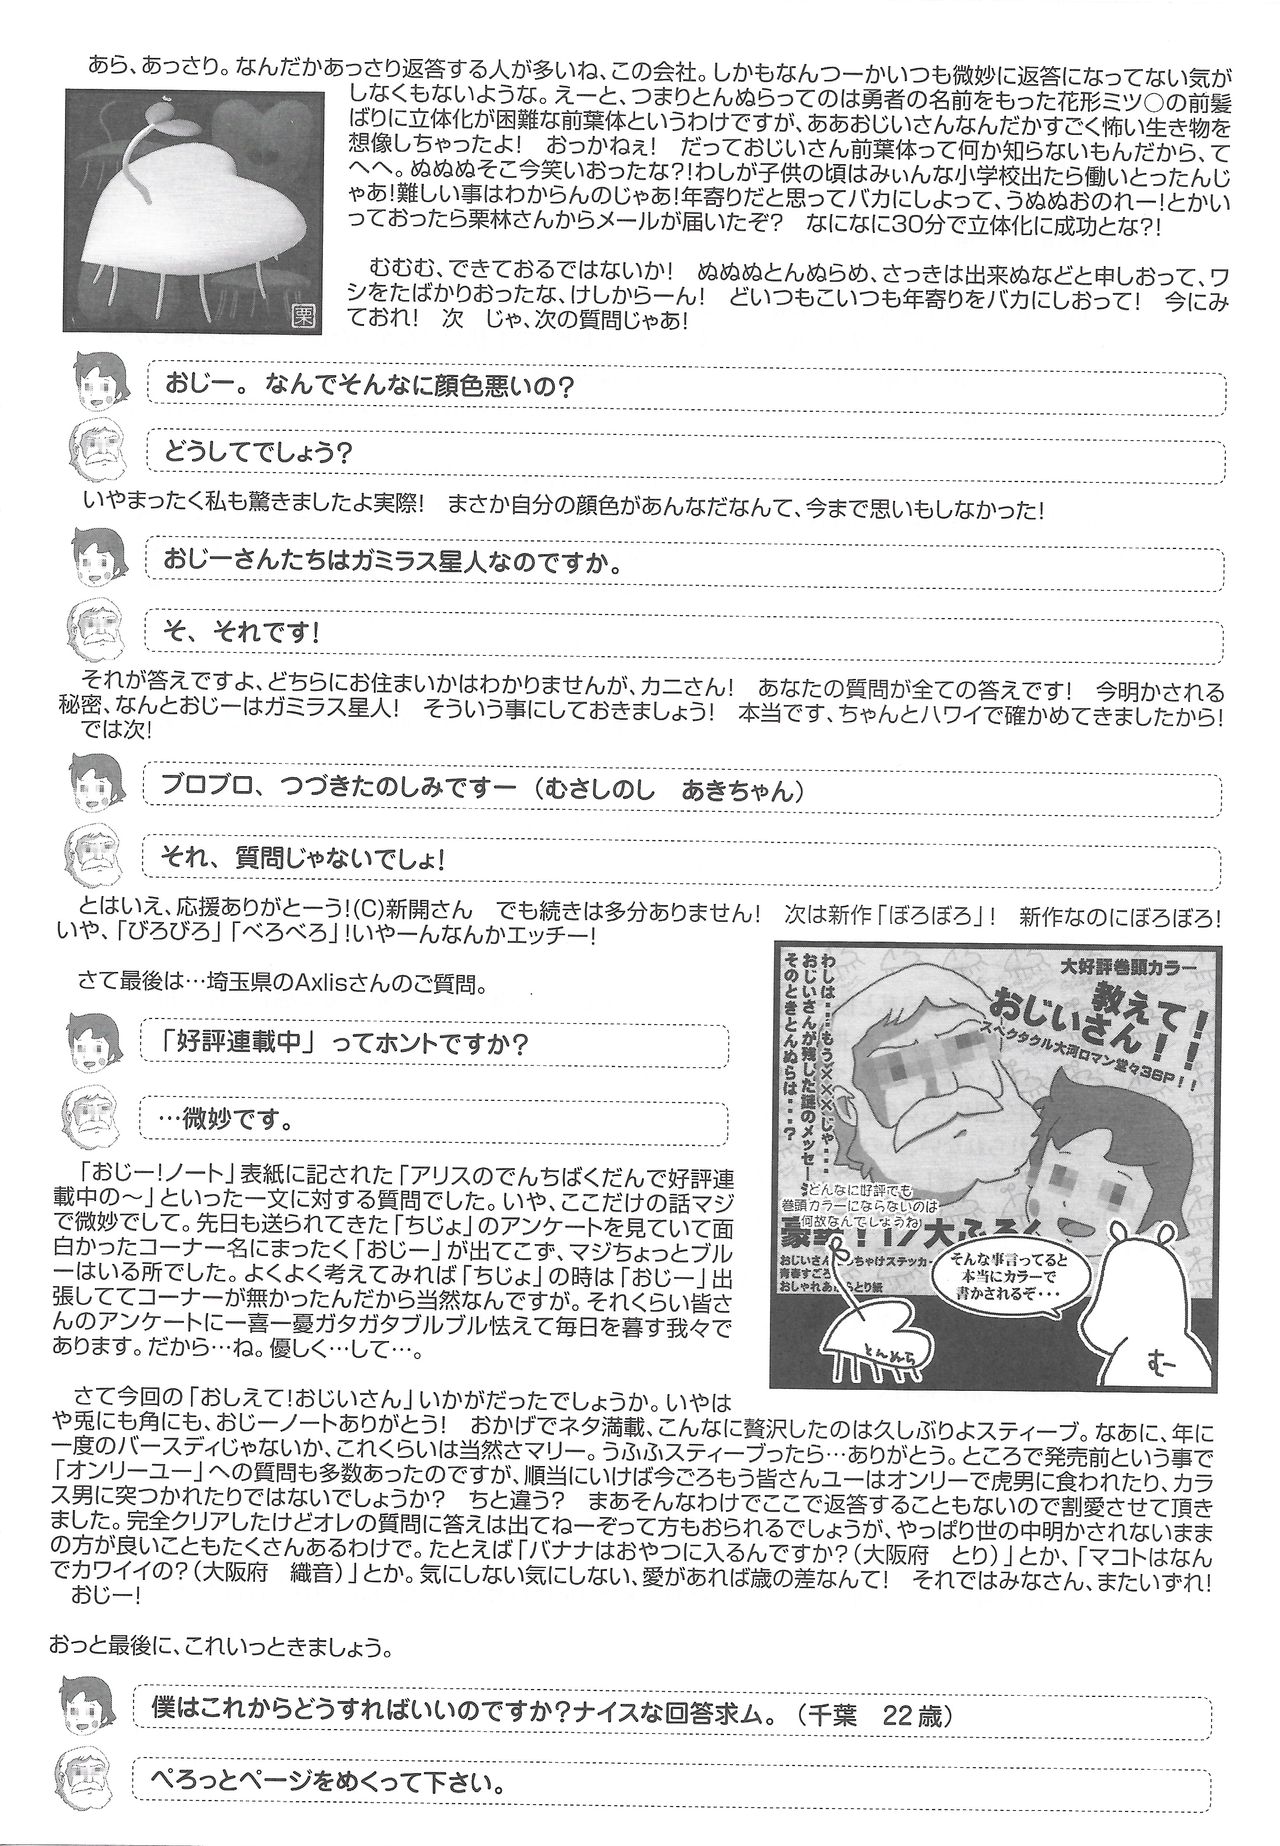 あら、あっさり。なんだかあっさり返答する人が多いね、この会社。しかもなんつーかいつも微妙に返答になってない気が
しなくもないような。えーと、つまりとんぬらってのは勇者の名前をもった花形ミツ○の前髪
ばりに立体化が困難な前葉体というわけですが、ああおじいさんなんだかすごく怖い生き物を
想像しちゃったよ!　おっかねぇ!　だっておじいさん前葉体って何か知らないもんだから、て
へへ。ぬぬぬそこ今笑いおったな?!わしが子供の頃はみぃんな小学校出たら働いとったんじ
ゃあ!難しい事はわからんのじゃあ!年寄りだと思ってバカにしよって、うぬぬおのれー!とかい
っておったら栗林さんからメールが届いたぞ?　なになに30分で立体化に成功とな?!
むむむ、できておるではないか!　ぬぬぬとんぬらめ、さっきは出来ぬなどと申しおって、ワ
シをたばかりおったな、けしからーん!　どいつもこいつも年寄りをバカにしおって!　今にみ
ておれ!　次　じゃ、次の質問じゃあ!
栗
おじー。なんでそんなに顔色悪いの?
どうしてでしょう?
いやまったく私も驚きましたよ実際!　まさか自分の顔色があんなだなんて、今まで思いもしなかった!
おじーさんたちはガミラス星人なのですか。
そ、それです!
それが答えですよ、どちらにお住まいかはわかりませんが、カニさん!　あなたの質問が全ての答えです!　今明かされる
秘密、なんとおじーはガミラス星人!　そういう事にしておきましょう!　本当です、ちゃんとハワイで確かめてきましたから!
では次!
ブロブロ、つづきたのしみですー（むさしのし　あきちゃん）
それ、質問じゃないでしょ!
とはいえ、応援ありがとーう!(C)新開さん　でも続きは多分ありません!　次は新作「ぼろぼろ」!　新作なのにぼろぼろ!
いや、「びろびろ」「べろべろ」!いやーんなんかエッチー!
さて最後は…埼玉県のAxlisさんのご質問。
「好評連載中」ってホントですか?
…微妙です。
「おじー!ノート」表紙に記された「アリスのでんちばくだんで好評連
載中の～」といった一文に対する質問でした。いや、ここだけの話マジ
で微妙でして。先日も送られてきた「ちじょ」のアンケートを見ていて面
白かったコーナー名にまったく「おじー」が出てこず、マジちょっとブル
ーはいる所でした。よくよく考えてみれば「ちじょ」の時は「おじー」出
張しててコーナーが無かったんだから当然なんですが。それくらい皆さ
んのアンケートに一喜一憂ガタガタブルブル怯えて毎日を暮す我々で
あります。だから…ね。優しく…して…。
大好評巻頭カラー
教えて!
おじいさん!!
スペクタクル大河ロマン堂々36P!!
わしは…もう×××じゃ…
おじいさんが残した謎のメッセー
そのときとんぬらは…?
どんなに好評でも
巻頭カラーにならないのは
何故なんでしょうね
大ふろく
おじいさん
ちゃけステッカー
青春すごろ
おしゃれあ
とり紙
そんな事言ってると
本当にカラーで
書かされるぞ…
とんぬら
むー
さて今回の「おしえて!おじいさん」いかがだったでしょうか。いやは
や兎にも角にも、おじーノートありがとう!　おかげでネタ満載、こんなに贅沢したのは久しぶりよスティーブ。なあに、年に
一度のバースディじゃないか、これくらいは当然さマリー。うふふスティーブったら…ありがとう。ところで発売前という事で
「オンリーユー」への質問も多数あったのですが、順当にいけば今ごろもう皆さんユーはオンリーで虎男に食われたり、カラ
ス男に突つかれたりではないでしょうか?　ちと違う?　まあそんなわけでここで返答することもないので割愛させて頂き
ました。完全クリアしたけどオレの質問に答えは出てねーぞって方もおられるでしょうが、やっぱり世の中明かされないまま
の方が良いこともたくさんあるわけで。たとえば「バナナはおやつに入るんですか?（大阪府　とり）」とか、「マコトはなん
でカワイイの?（大阪府　織音）」とか。気にしない気にしない、愛があれば歳の差なんて!　それではみなさん、またいずれ!
おじー!
おっと最後に、これいっときましょう。
僕はこれからどうすればいいのですか?ナイスな回答求ム。（千葉　22歳）
ぺろっとページをめくって下さい。